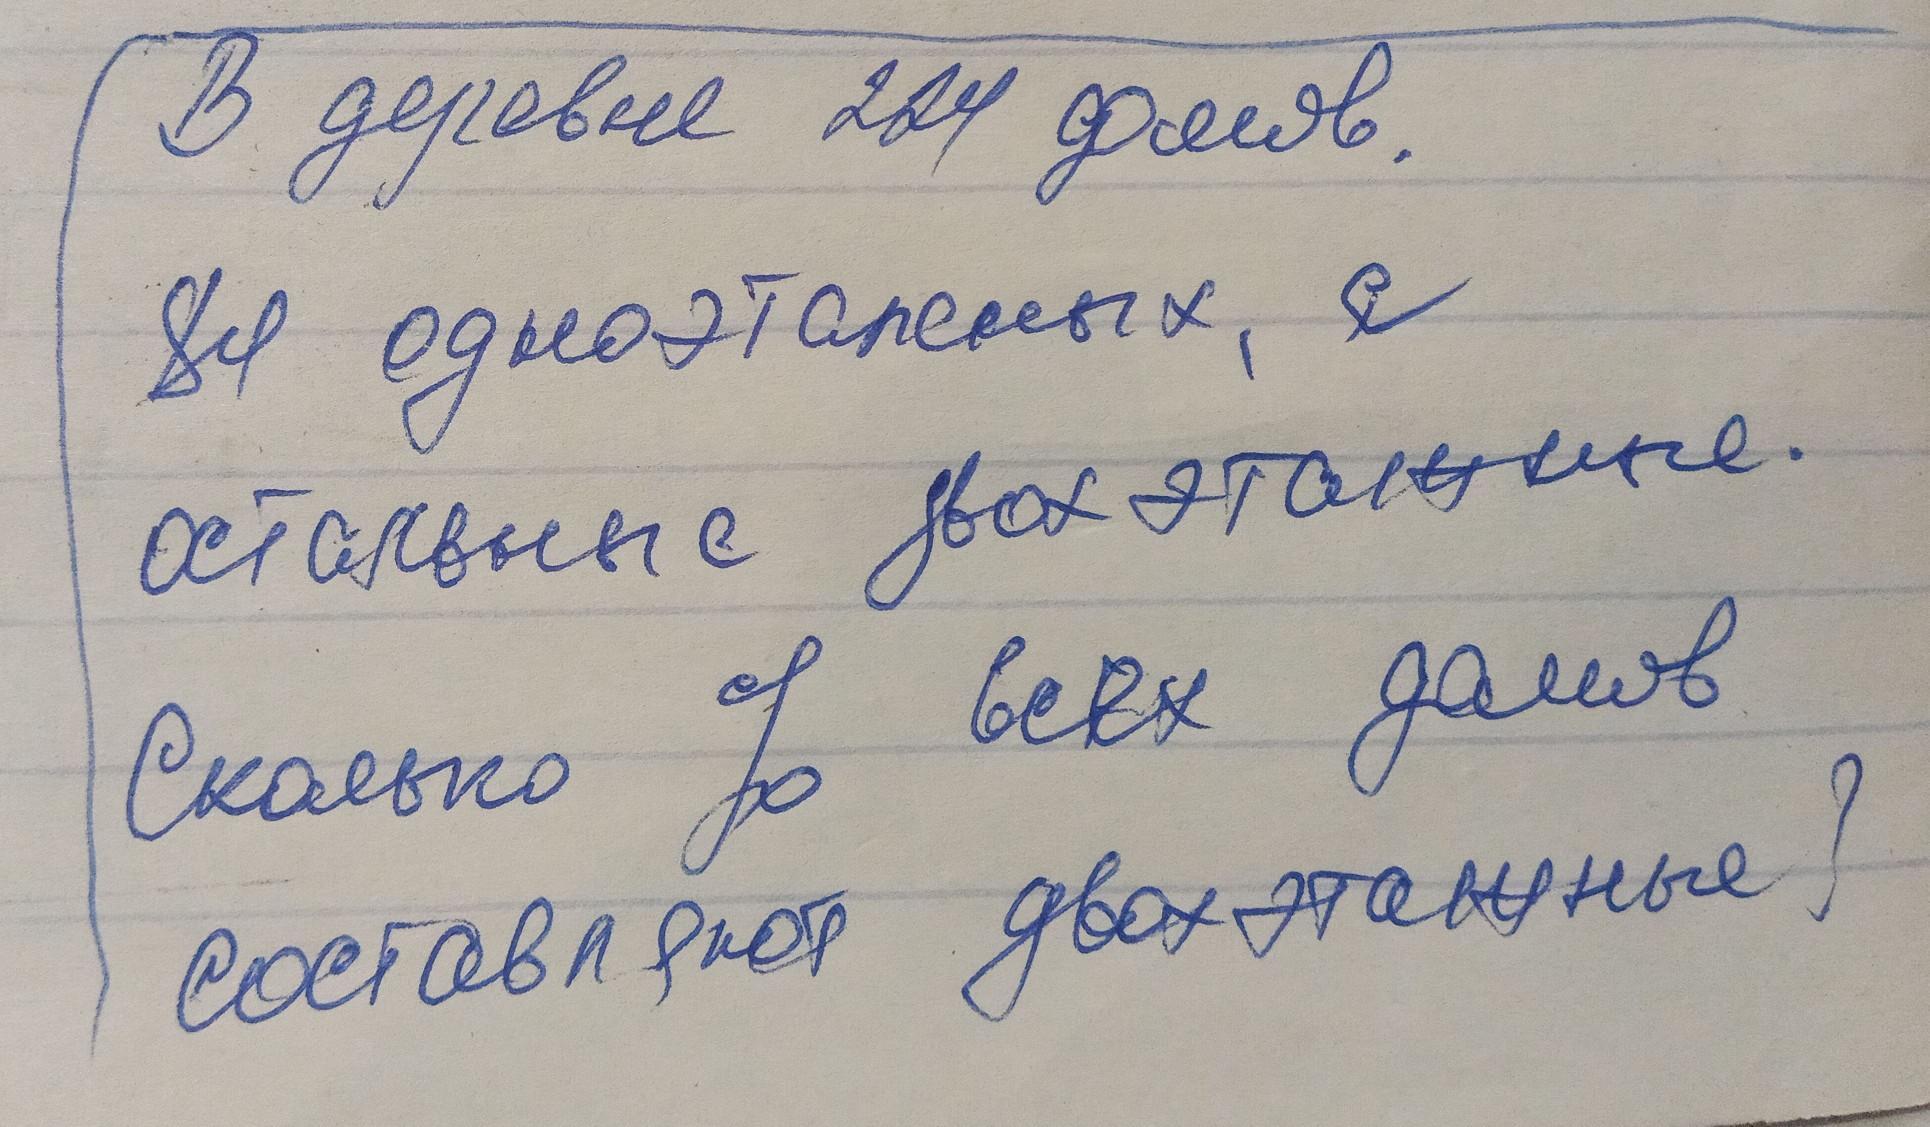 В деревне 224 домов.
84 одноэтажных, а
остальные двохэтажные.
Сколько % всех домов
составляют двохэтажные?